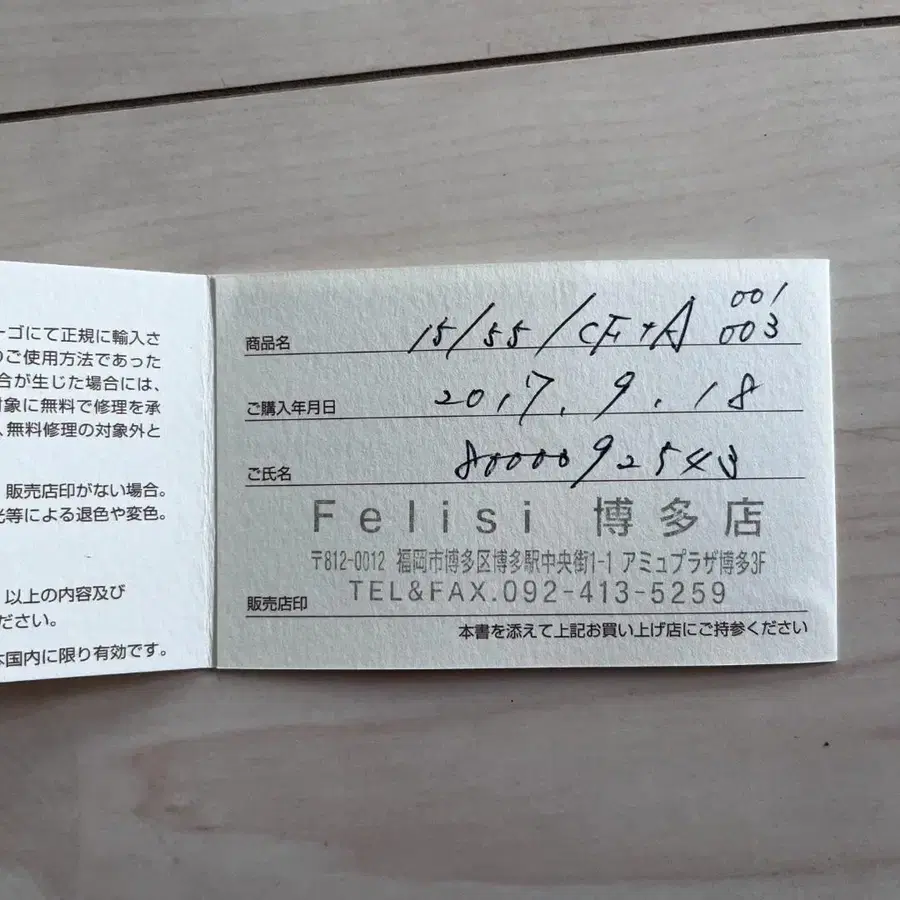 ーゴにて正規に輸入さ
のご使用方法であった
合が生じた場合には、
対象に無料で修理を承
、無料修理の対象外と
販売店印がない場合。
光等による退色や変色。
以上の内容及び
ださい。
本国内に限り有効です。
001
商品名 15/55/CF+A 003
ご購入年月日 2017.9.18
ご氏名 8000092543
Felisi 博多店
〒812-0012 福岡市博多区博多駅中央街1-1 アミュプラザ博多3F
販売店印 TEL&FAX.092-413-5259
本書を添えて上記お買い上げ店にご持参ください